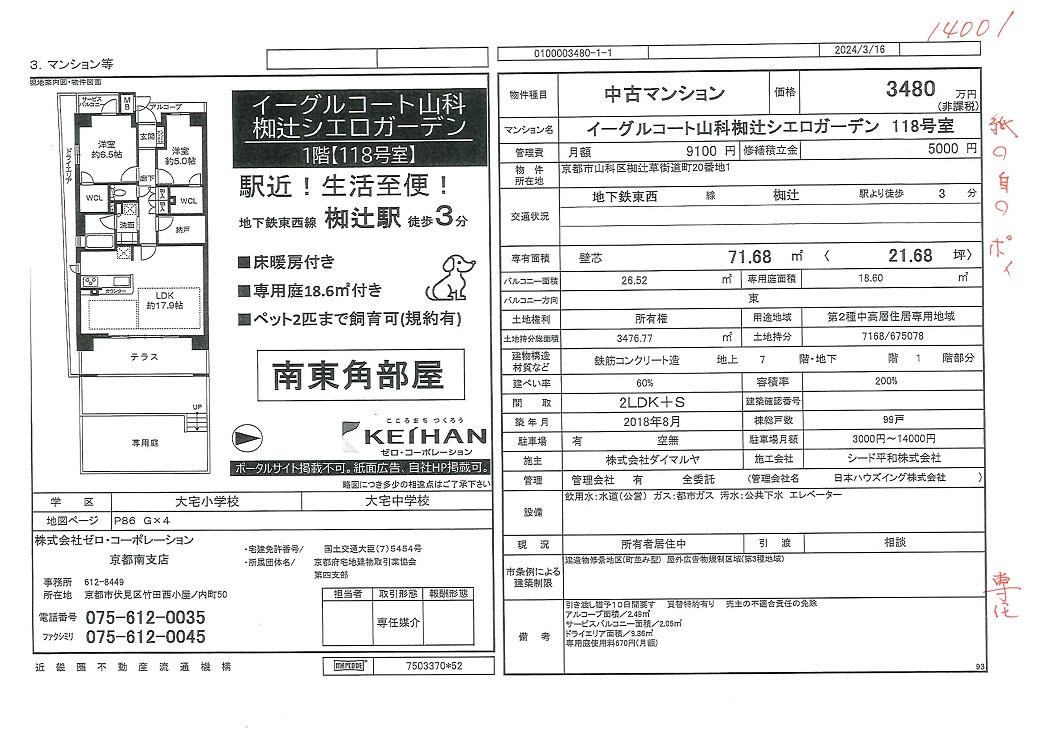 14001
0100003480-1-1
2024/3/16
3. マンション等
現地案内図・物件図面
サービスバルコニー
MB
アルコープ
玄関
洋室
約6.5帖
洋室
約5.0帖
ドライエリア
廊下
WCL
WCL
洗面
納戸
カウンター
LDK
約17.9帖
テラス
UP
専用庭
イーグルコート山科
椥辻シエロガーデン
1階【118号室】
駅近！生活至便！
地下鉄東西線 椥辻駅 徒歩3分
■床暖房付き
■専用庭18.6㎡付き
■ペット2匹まで飼育可(規約有)
南東角部屋
こころまち つくろう
KEIHAN
ゼロ・コーポレーション
ポータルサイト掲載不可。紙面広告、自社HP掲載可。
略図につき多少の相違点はご了承下さい
学 区 大宅小学校 大宅中学校
地図ページ P86 G×4
株式会社ゼロ・コーポレーション
京都南支店
・宅建免許番号/ 国土交通大臣(7)5454号
・所属団体名/ 京都府宅地建物取引業協会
第四支部
事務所 612-8449
所在地 京都市伏見区竹田西小屋ノ内町50
電話番号 075-612-0035
ﾌｧｸｼﾐﾘ 075-612-0045
担当者 取引形態 報酬形態
専任媒介
近畿圏不動産流通機構
MAPCODE 7503370*52
物件種目 中古マンション 価格 3480 万円
(非課税)
マンション名 イーグルコート山科椥辻シエロガーデン 118号室
管理費 月額 9100 円 修繕積立金 5000 円
物件所在地 京都市山科区椥辻草街道町20番地1
交通状況 地下鉄東西 線 椥辻 駅より徒歩 3 分
専有面積 壁芯 71.68 ㎡ 〈 21.68 坪〉
バルコニー面積 26.52 ㎡ 専用庭面積 18.60 ㎡
バルコニー方向 東
土地権利 所有権 用途地域 第2種中高層住居専用地域
土地持分総面積 3476.77 ㎡ 土地持分 7168/675078
建物構造材質など 鉄筋コンクリート造 地上 7 階・地下 階 1 階部分
建ぺい率 60% 容積率 200%
間 取 2LDK＋S 建築確認番号
築年月 2018年8月 棟総戸数 99戸
駐車場 有 空無 駐車場月額 3000円～14000円
施主 株式会社ダイマルヤ 施工会社 シード平和株式会社
管理 管理会社 有 全委託 (管理会社名 日本ハウズイング株式会社 )
設備 飲用水:水道(公営) ガス:都市ガス 汚水:公共下水 エレベーター
現 況 所有者居住中 引 渡 相談
市条例による建築制限 建造物修景地区(町並み型) 屋外広告物規制区域(第3種地域)
備 考 引き渡し猶予10日間要す 買替特約有り 売主の不適合責任の免除
アルコープ面積／2.49㎡
サービスバルコニー面積／2.05㎡
ドライエリア面積／9.36㎡
専用庭使用料670円(月額)
93
紙の自のポイ
専任